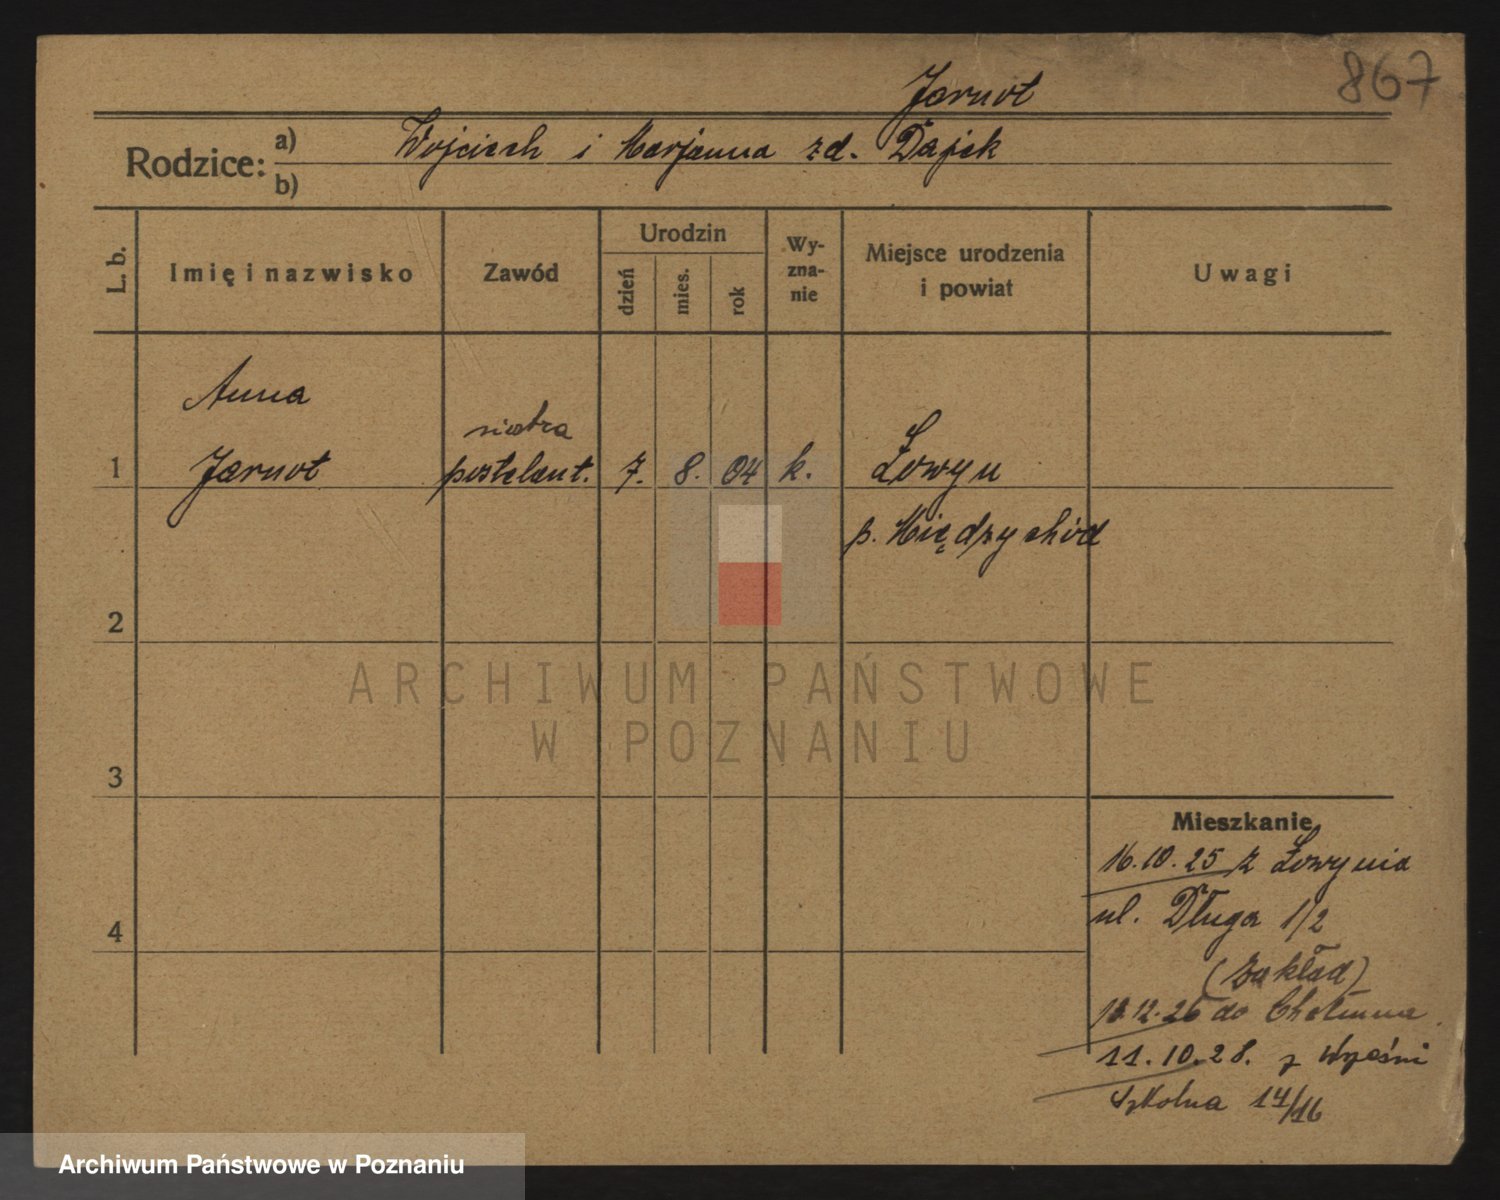 867
Jarnot
Rodzice: a) Wojciech i Marjanna zd. Dajek
b)
L. b.
Imię i nazwisko
Zawód
Urodzin
dzień
mies.
rok
Wy-
zna-
nie
Miejsce urodzenia
i powiat
Uwagi
Anna
siostra
1 Jarnot postulant. 7. 8. 04 k. Łowyn
p. Międzychód
2
3
4
ARCHIWUM PAŃSTWOWE
W POZNANIU
Mieszkanie
16.10.25 z Łowynia
ul. Długa 1/2
(zakład)
12.26 do Chełmna
11.10.28. z
Szkolna 14/16
Archiwum Państwowe w Poznaniu